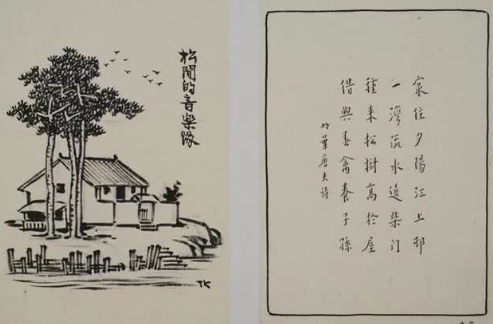 松間的音樂隊
TK
家住夕陽江上邨
一灣流水遶柴門
種来松樹高於屋
借與春禽養子孫
明葉唐夫詩